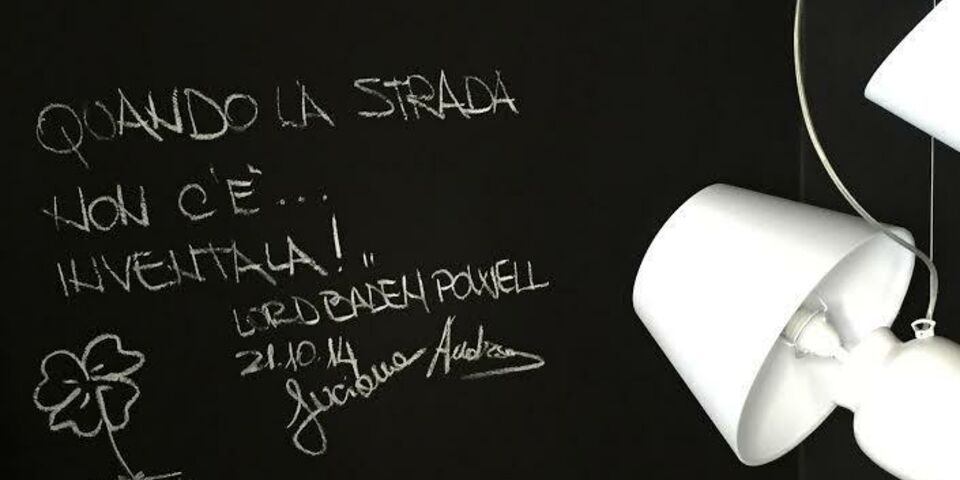 QUANDO LA STRADA
NON C'È...
INVENTALA!"
LORD BADEN POWELL
21.10.14
Luciana Andrea